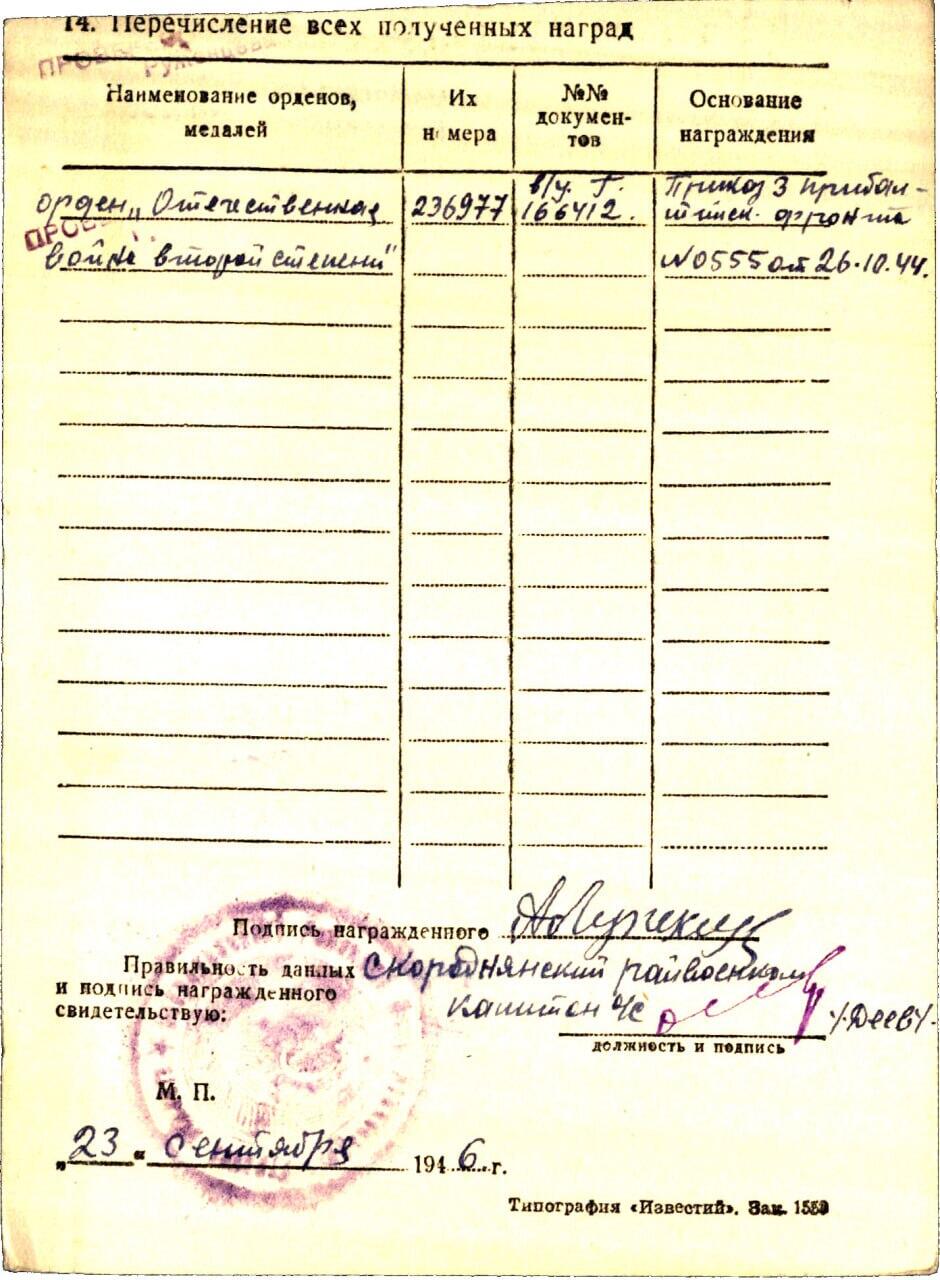 14. Перечисление всех полученных наград
Наименование орденов, медалей
Их номера
№№ документов
Основание награждения
орден „Отечественная
236977
в/у. Г. 166412.
Приказ 3 прибал-
тийск. фронта
война второй степени"
N0555 от 26.10.44.
Подпись награжденного
Правильность данных Скороднянский райвоенком
и подпись награжденного капитон
свидетельствую: /Деев/.
должность и подпись
М. П.
„23" сентября 1946 г.
Типография «Известий». Зак.